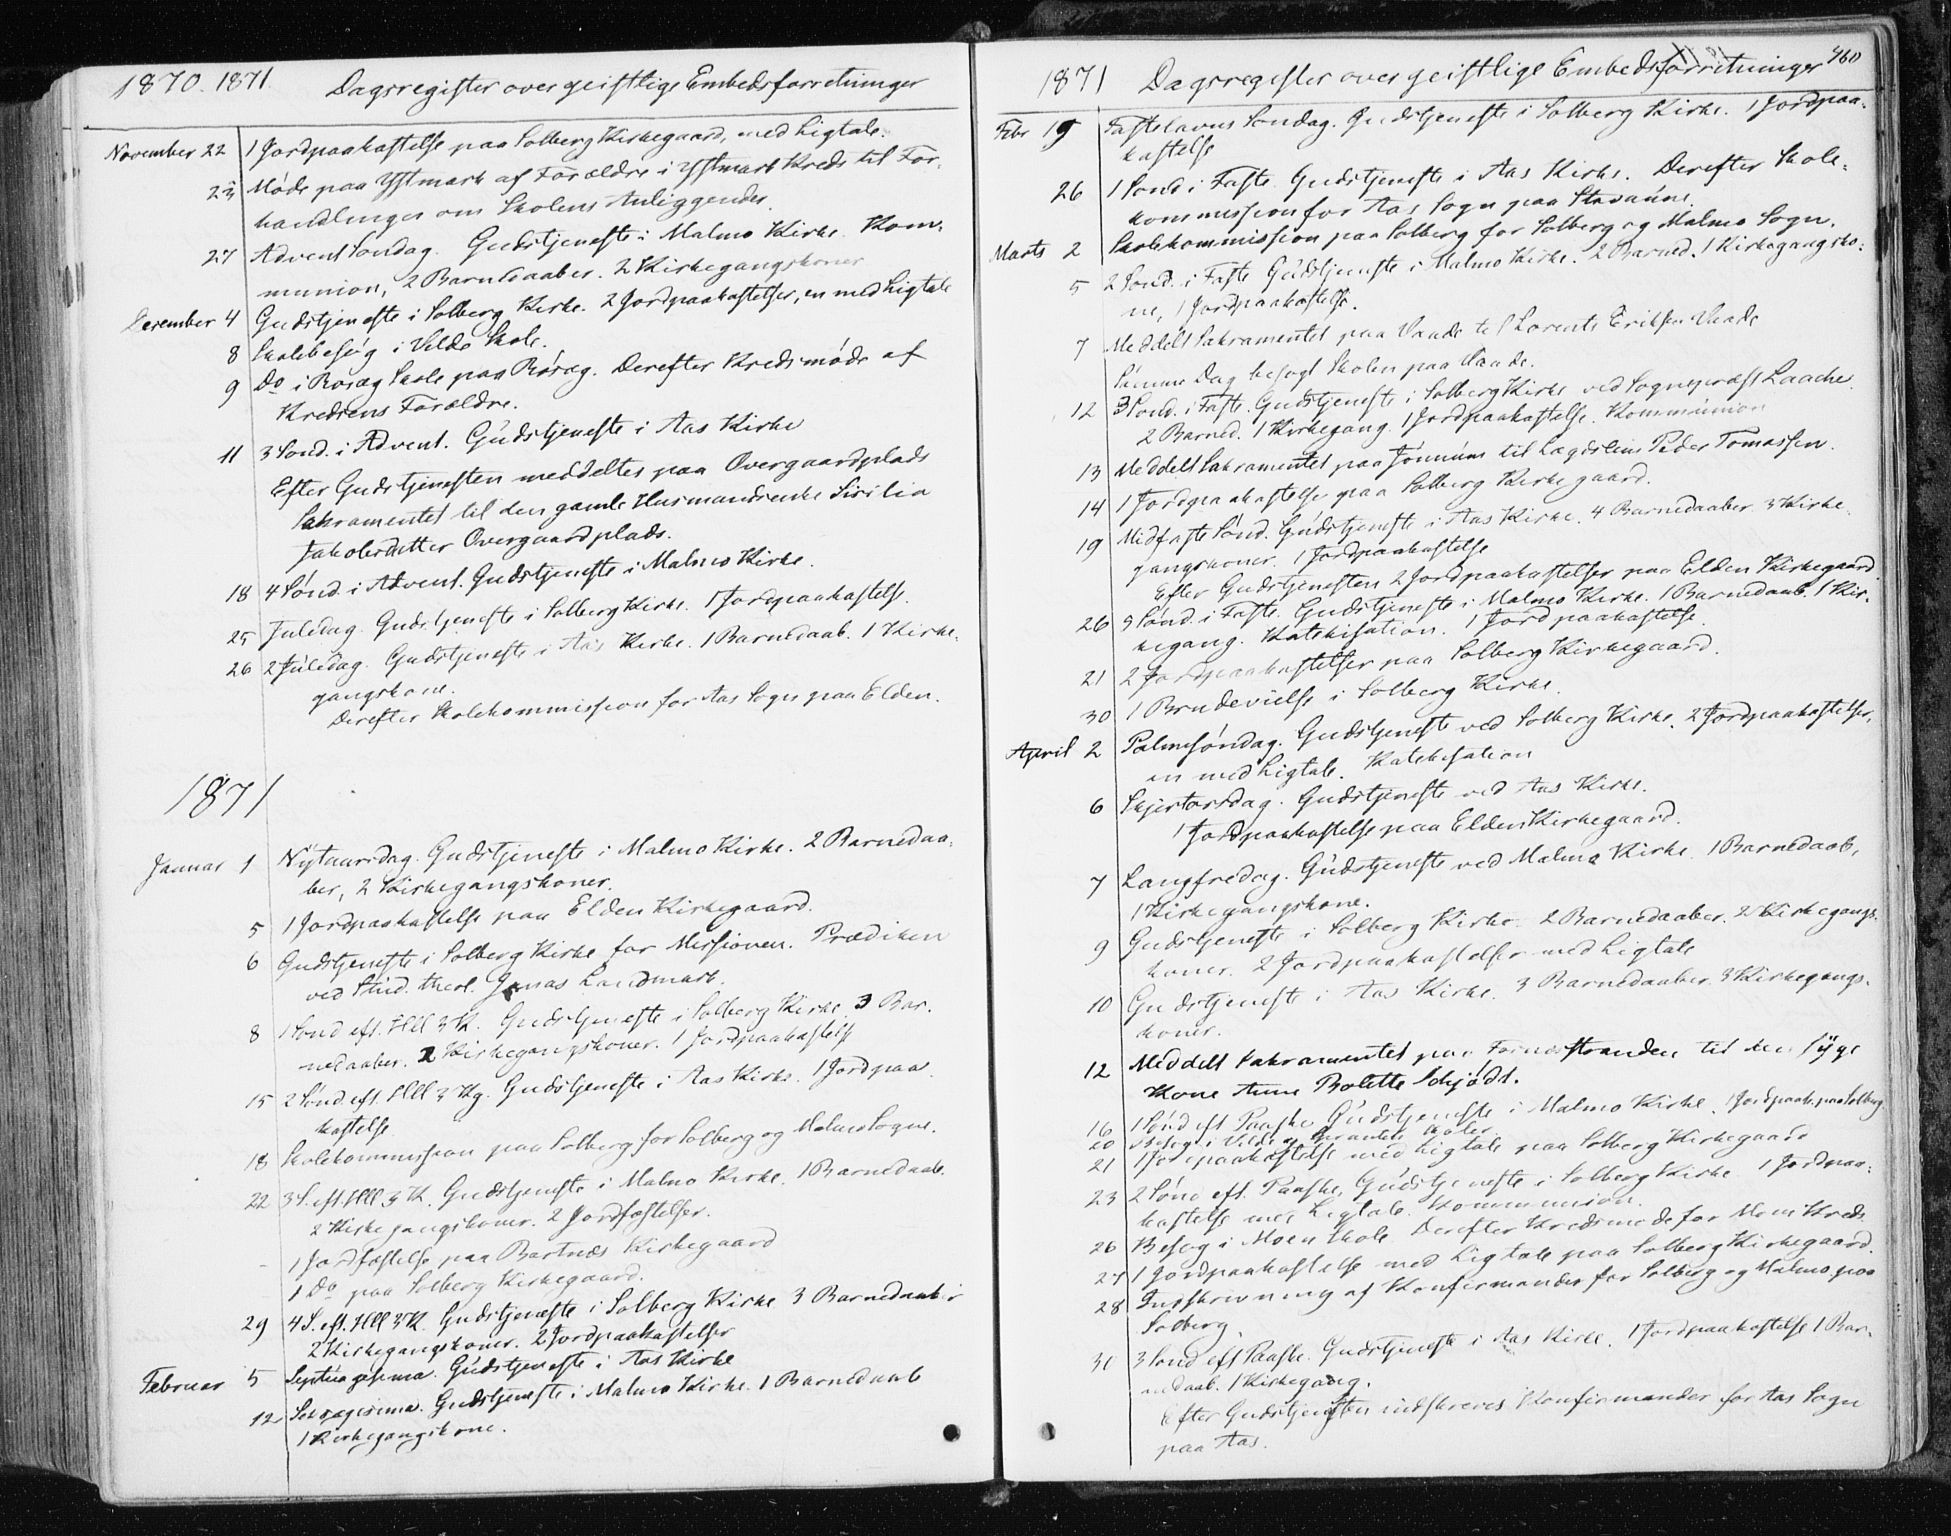 1870. 1871. Dagsregister over geistlige Embedsforretninger
November 22 1 Jordpaakastelse paa Solberg Kirkegaard, med Ligtale.
Møde paa Ystmark af Forældre i Ystmark Kreds til For-
handlinger om Skolens Anliggender.
27 Advent Søndag. Gudstjeneste i Malmo Kirke. Kom-
munion, 2 Barnedaaber. 2 Kirkegangskoner
December 4 Gudstjeneste i Solberg Kirke. 2 Jordpaakastelser, en med Ligtale
8 Skolebesøg i Velde Skole.
9 Do i Røræg Skole paa Røræg. Derefter Kredsmøde af
Kredsens Forældre.
11 3 Sønd. i Advent. Gudstjeneste i Aas Kirke
Efter Gudstjenesten meddeltes paa Overgaardplads
Sakramentet til den gamle Husmandsenke Sirilia
Jakobsdatter Overgaardplads.
18 4 Sønd. i Advent. Gudstjeneste i Malmo Kirke.
25 Juledag. Gudstjeneste i Solberg Kirke. 1 Jordpaakastelse.
26 2 Juledag. Gudstjeneste i Aas Kirke. 1 Barnedaab. 1 Kirke-
gangskone.
Derefter Skolekommission for Aas Sogn paa Elden.
1871
Januar 1 Nytaarsdag. Gudstjeneste i Malmo Kirke. 2 Barnedaa-
ber, 2 Kirkegangskoner.
5 1 Jordpaakastelse paa Elden Kirkegaard.
6 Gudstjeneste i Solberg Kirke for Missionen. Prædiken
ved Stud. theol. Jonas Landmark.
8 1 Sønd eft. Hll 3 K. Gudstjeneste i Solberg Kirke. 3 Bar-
nedaaber. 2 Kirkegangskoner. 1 Jordpaakastelse
15 2 Sønd. eft. Hll 3 Kg. Gudstjeneste i Aas Kirke. 1 Jordpaa-
kastelse
18 Skolekommission paa Solberg for Solberg og Malmo Sogne.
22 3 S. eft. Hll 3 K. Gudstjeneste i Malmo Kirke. 1 Barnedaab.
2 Kirkegangskoner. 2 Jordfæstelser.
1 Jordfæstelse paa Bartnæs Kirkegaard
1 Do paa Solberg Kirkegaard.
29 4 S. eft. Hll 3 K. Gudstjeneste i Solberg Kirke 3 Barnedaaber
2 Kirkegangskoner. 2 Jordpaakastelser
Februar 5 Septuagesima. Gudstjeneste i Aas Kirke
12 Sexagesima. Gudstjeneste i Malmo Kirke. 1 Barnedaab
1 Kirkegangskone.
1871 Dagsregister over geistlige Embedsforretninger 460
Febr 19 Fastelavns Søndag. Gudstjeneste i Solberg Kirke. 1 Jordpaa-
kastelse
26 1 Sønd i Faste. Gudstjeneste i Aas Kirke. Derefter Skole-
kommission for Aas Sogn paa
Marts 2 Skolekommission paa Solberg for Solberg og Malmo Sogn.
5 2 Sønd. i Faste Gudstjeneste i Malmo Kirke. 2 Barned. 1 Kirkegangsko-
ne, 1 Jordpaakastelse.
7 Meddelt Sakramentet paa Vaade til Lorents Eriksen Vaade
Samme Dag besøgt Skolen paa Vaade.
12 3 Sønd. i Faste. Gudstjeneste i Solberg Kirke ved Sognepræst Laache.
2 Barned. 1 Kirkegang. 1 Jordpaakastelse. Kommunion
13 Meddelt Sakramentet paa til Lægdslem Peder Tomassen.
14 1 Jordpaakastelse paa Solberg Kirkegaard.
19 Midfaste Sønd. Gudstjeneste i Aas Kirke. 4 Barnedaaber 3 Kirke-
gangskoner. 1 Jordpaakastelse
Efter Gudstjenesten 2 Jordpaakastelser paa Elden Kirkegaard
26 5 Sønd. i Faste. Gudstjeneste i Malmo Kirke. 1 Barnedaab. 1 Kir-
kegang. Katekisation. 1 Jordpaakastelse.
21 2 Jordpaakastelser paa Solberg Kirkegaard.
30 1 Brudevielse i Solberg Kirke.
April 2 Palmesøndag. Gudstjeneste ved Solberg Kirke. 2 Jordpaakastelser,
en med Ligtale. Katekisation
6 Skjertorsdag. Gudstjeneste ved Aas Kirke.
1 Jordpaakastelse paa Elden Kirkegaard.
7 Langfredag. Gudstjeneste ved Malmo Kirke. 1 Barnedaab,
1 Kirkegangskone.
9 Gudstjeneste i Solberg Kirke. 2 Barnedaaber. 2 Kirkegangs-
koner. 2 Jordpaakastelser med Ligtale
10 Gudstjeneste i Aas Kirke. 3 Barnedaaber. 3 Kirkegangs-
koner.
12 Meddelt Sakramentet paa Fornesstranden til den syge
Kone Anne Bolette Schjødt.
16 1 Sønd eft Paaske Gudstjeneste i Malmo Kirke. 1 Jordpaak. paa Solberg
20 Besøg i Velde Skoler
21 1 Jordpaakastelse med Ligtale paa Solberg Kirkegaard
23 2 Sønd eft. Paaske, Gudstjeneste i Solberg Kirke 1 Jordpaa-
kastelse med Ligtale. Kommunion.
26 Besøg i Moen Skole Derefter Kredsmøde for Moen Kreds
27 1 Jordpaakastelse med Ligtale paa Solberg Kirkegaard.
28 Indskrivning af Konfirmander for Solberg og Malmo paa
Solberg.
30 3 Sønd eft Paaske. Gudstjeneste i Aas Kirke. 1 Jordpaakastelse 1 Bar-
nedaab. 1 Kirkegang.
Efter Gudstjenesten indskreves Konfirmander for Aas Sogn
paa Aas.